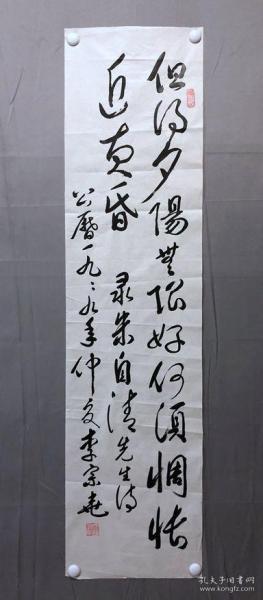 但得夕陽無限好何須惆悵
近黄昏 录朱自清先生诗
公曆一九九九年仲夏李宗堯
孔夫子旧书网
www.kongfz.com